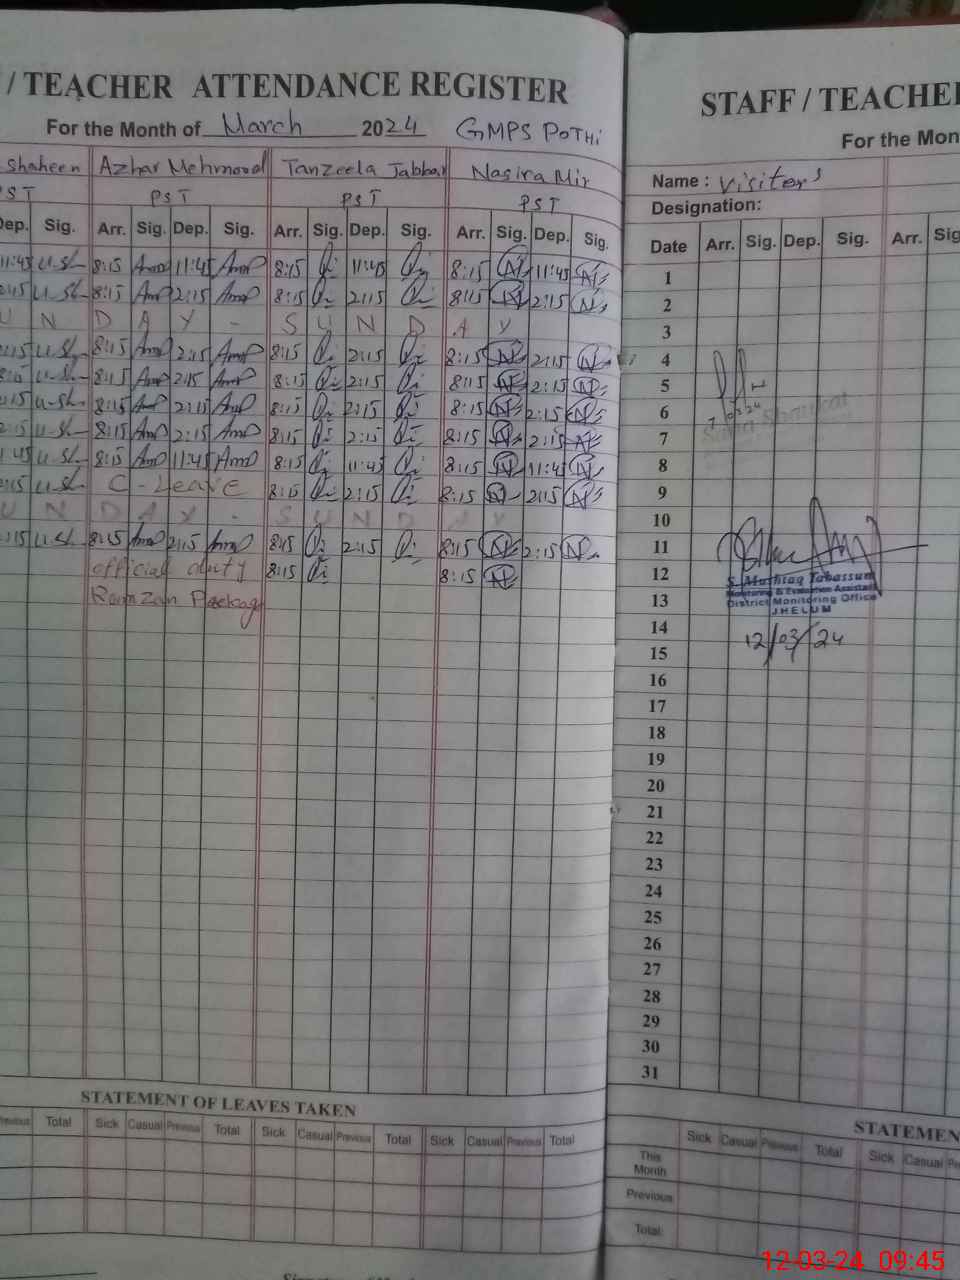 / TEACHER ATTENDANCE REGISTER
For the Month of March 2024 GMPS POTHI
shaheen Azhar Mehmood Tanzeela Jabbar Nasira Mir
PST PST PST PST
Dep. Sig. Arr. Sig. Dep. Sig. Arr. Sig. Dep. Sig. Arr. Sig. Dep. Sig.
11:45 u.sh 8:15 Amd 11:45 Amd 8:15 11:45 8:15 N 11:45 N
2:15 u.sh 8:15 Amd 2:15 Amd 8:15 2:15 8:15 N 2:15 N
U N D A Y - S U N D A Y
2:15 u.sh 8:15 Amd 2:15 Amd 8:15 2:15 8:15 N 2:15 N
u.sh 8:15 Amd 2:15 Amd 8:15 2:15 8:15 N 2:15 N
2:15 u.sh 8:15 Amd 2:15 Amd 8:15 2:15 8:15 N 2:15 N
2:15 u.sh 8:15 Amd 2:15 Amd 8:15 2:15 8:15 N 2:15 N
11:45 u.sh 8:15 Amd 11:45 Amd 8:15 11:45 8:15 N 11:45 N
2:15 u.sh C-Leave 8:15 2:15 8:15 N 2:15 N
U N D A Y - S U N D A Y
2:15 u.sh 8:15 Amd 2:15 Amd 8:15 2:15 8:15 N 2:15 N
official duty 8:15 8:15 N
Ramzan Package
STATEMENT OF LEAVES TAKEN
Previous Total Sick Casual Previous Total Sick Casual Previous Total Sick Casual Previous Total
STAFF / TEACHE
For the Mon
Name : Visiters
Designation:
Date Arr. Sig. Dep. Sig. Arr. Sig
1
2
3
4
5
6
Saira Shaukat
7
8
9
10
11
12
S. Mushtaq Tabassum
Monitoring & Evaluation Assistant
13
District Monitoring Office
JHELUM
14
12/03/24
15
16
17
18
19
20
21
22
23
24
25
26
27
28
29
30
31
STATEMEN
Sick Casual Previous Total Sick Casual Pre
This Month
Previous
Total
12-03-24 09:45